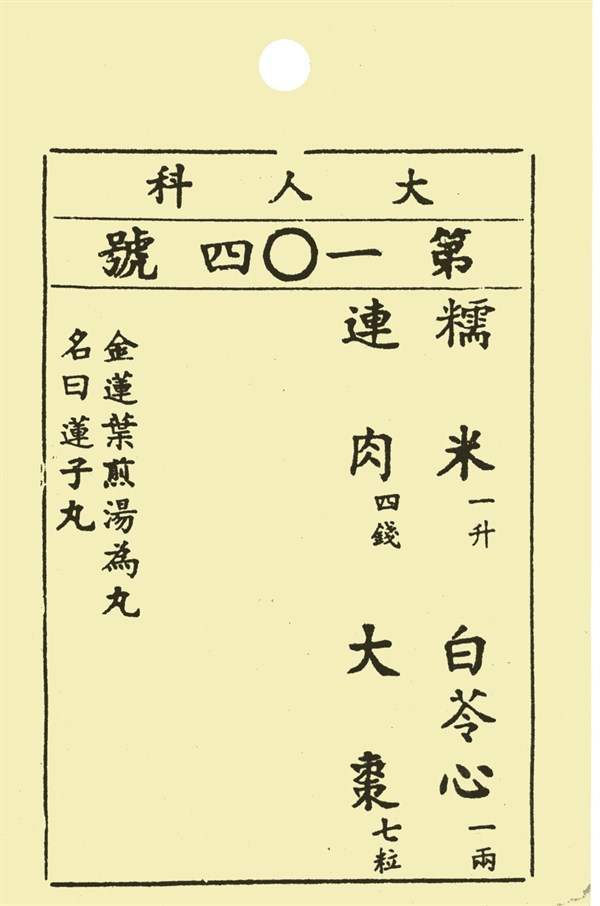 大人科
第一〇四號
糯米一升 白苓心一兩
連肉四錢 大棗七粒
金蓮葉煎湯為丸
名曰蓮子丸